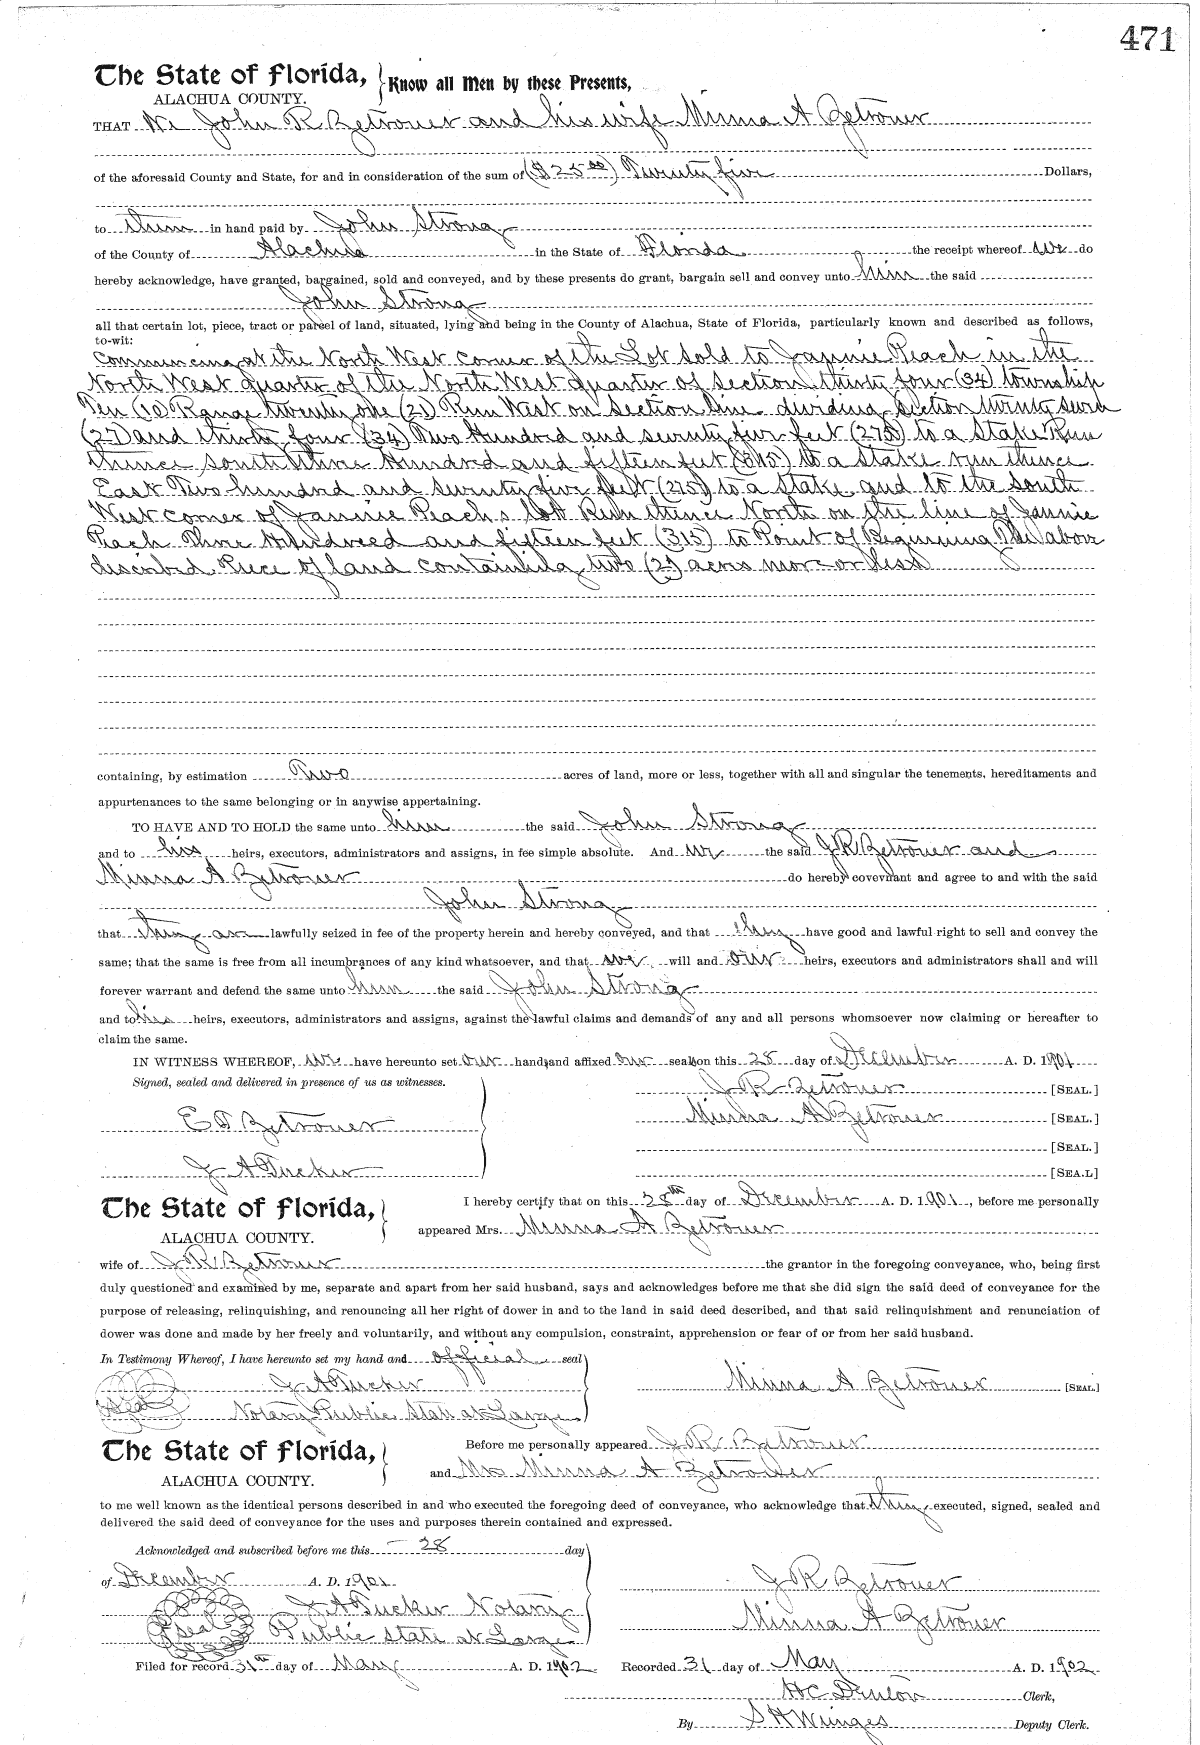 471
The State of Florida, Know all Men by these Presents,
ALACHUA COUNTY.
THAT We John R Zetrouer and his wife Minna A Zetrouer
of the aforesaid County and State, for and in consideration of the sum of ($25.00) Twenty five Dollars,
to them in hand paid by John Strong
of the County of Alachua in the State of Florida the receipt whereof we do
hereby acknowledge, have granted, bargained, sold and conveyed, and by these presents do grant, bargain sell and convey unto him the said
John Strong
all that certain lot, piece, tract or parcel of land, situated, lying and being in the County of Alachua, State of Florida, particularly known and described as follows,
to-wit:
Commencing at the North West corner of the Lot sold to Jannie Peach in the
North West quarter of the North West quarter of Section thirty four (34) township
Ten (10 Range twenty one (21) Run West on Section line dividing Section twenty seven
(27) and thirty four (34) Two Hundred and seventy five feet (275) to a Stake Run
thence south three Hundred and fifteen feet (315) to a Stake run thence
East Two hundred and seventy five feet (275) to a Stake and to the South
West corner of Jannie Peachs Lot Run thence North on the line of Jannie
Peach Three Hundreed and fifteen feet (315) to Point of Beginning The above
described Piece of land containing two (2) acres more or less
containing, by estimation Two acres of land, more or less, together with all and singular the tenements, hereditaments and
appurtenances to the same belonging or in anywise appertaining.
TO HAVE AND TO HOLD the same unto him the said John Strong
and to his heirs, executors, administrators and assigns, in fee simple absolute. And we the said J R Zetrouer and
Minna A Zetrouer do hereby covenant and agree to and with the said
John Strong
that they are lawfully seized in fee of the property herein and hereby conveyed, and that they have good and lawful right to sell and convey the
same; that the same is free from all incumbrances of any kind whatsoever, and that we will and our heirs, executors and administrators shall and will
forever warrant and defend the same unto him the said John Strong
and to his heirs, executors, administrators and assigns, against the lawful claims and demands of any and all persons whomsoever now claiming or hereafter to
claim the same.
IN WITNESS WHEREOF, we have hereunto set our hands and affixed our seals on this 28 day of December A. D. 1901
Signed, sealed and delivered in presence of us as witnesses.
J R Zetrouer [SEAL.]
Minna A Zetrouer [SEAL.]
E T Zetrouer
[SEAL.]
J A Tucker [SEA.L]
The State of Florida,
ALACHUA COUNTY.
I hereby certify that on this 28th day of December A. D. 1901, before me personally
appeared Mrs. Minna A Zetrouer
wife of J R Zetrouer the grantor in the foregoing conveyance, who, being first
duly questioned and examined by me, separate and apart from her said husband, says and acknowledges before me that she did sign the said deed of conveyance for the
purpose of releasing, relinquishing, and renouncing all her right of dower in and to the land in said deed described, and that said relinquishment and renunciation of
dower was done and made by her freely and voluntarily, and without any compulsion, constraint, apprehension or fear of or from her said husband.
In Testimony Whereof, I have hereunto set my hand and official seal
J A Tucker
Minna A Zetrouer [SEAL.]
Seal Notary Public State at Large
The State of Florida,
ALACHUA COUNTY.
Before me personally appeared J R Zetrouer
and Mrs Minna A Zetrouer
to me well known as the identical persons described in and who executed the foregoing deed of conveyance, who acknowledge that they executed, signed, sealed and
delivered the said deed of conveyance for the uses and purposes therein contained and expressed.
Acknowledged and subscribed before me this 28 day
of December A. D. 1901
J R Zetrouer
J A Tucker Notary
Minna A Zetrouer
Seal Public State at Large
Filed for record 31st day of May A. D. 1902 Recorded 31 day of May A. D. 1902
H C Denton Clerk,
By S H Wienges Deputy Clerk.